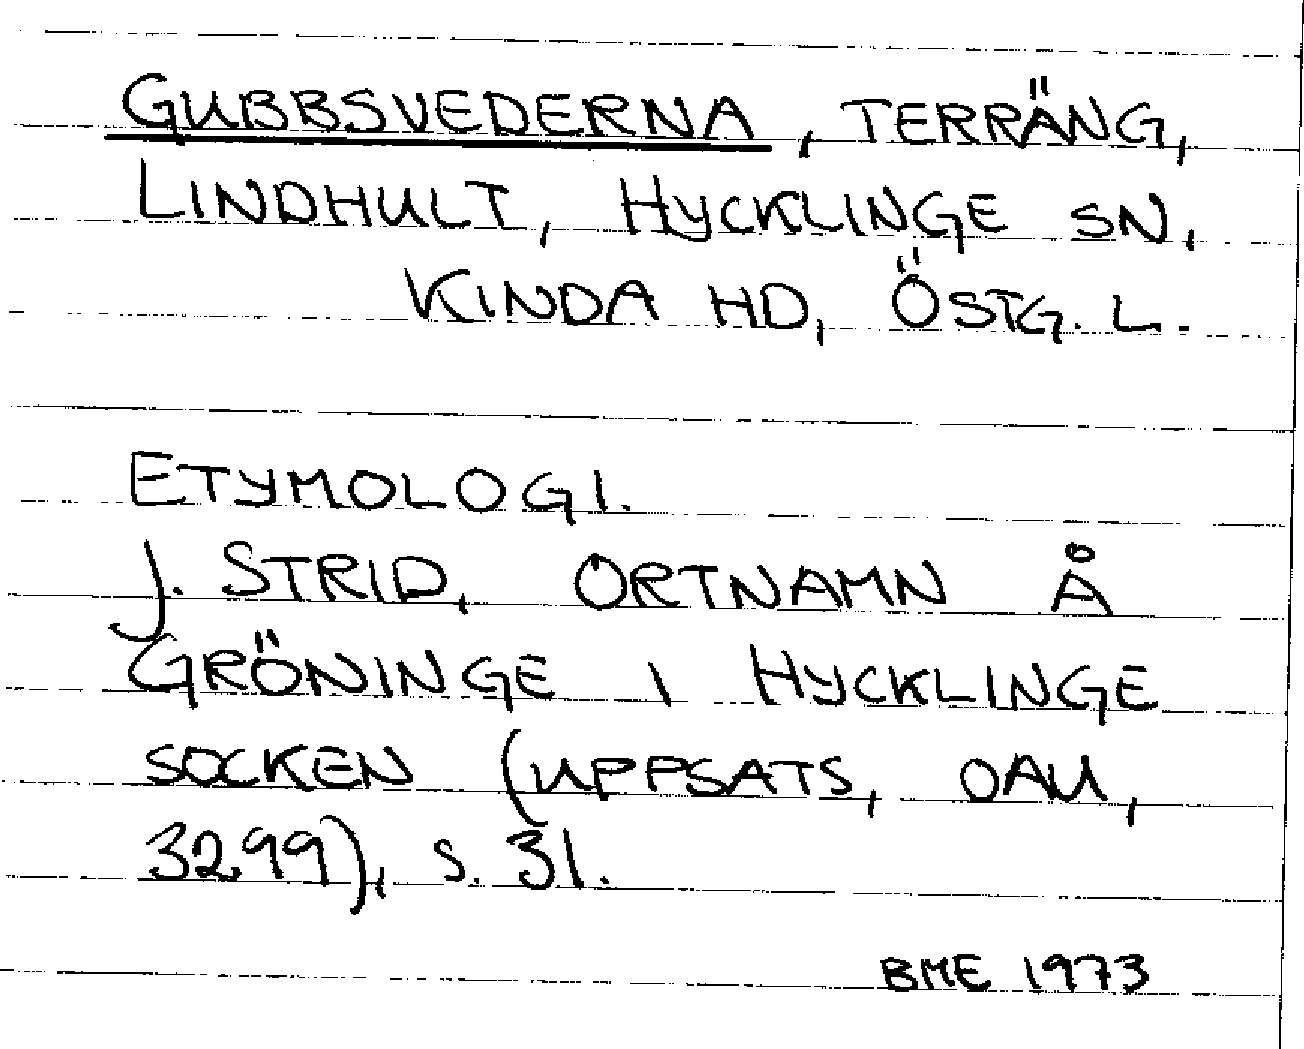 GUBBSVEDERNA, TERRÄNG,
LINDHULT, HYCKLINGE SN,
KINDA HD, ÖSTG. L.
ETYMOLOGI.
J. STRID, ORTNAMN Å
GRÖNINGE I HYCKLINGE
SOCKEN (UPPSATS, OAU,
3299), S. 31.
BME 1973